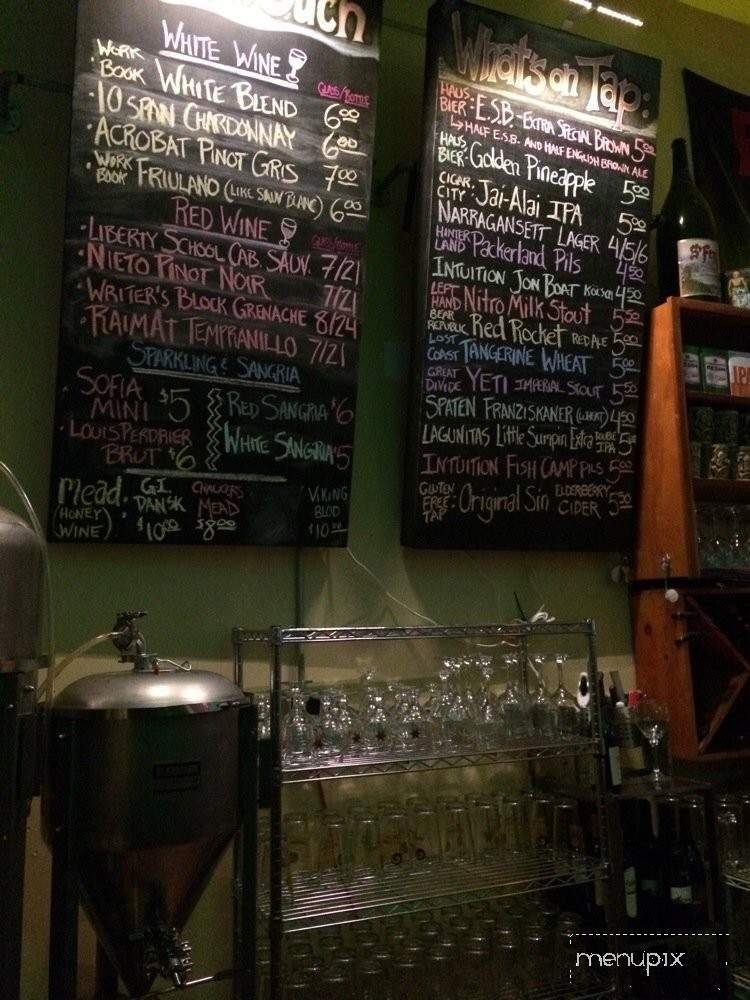 WHITE WINE
GLASS/BOTTLE
• WORK BOOK WHITE BLEND 6⁰⁰
• 10 SPAN CHARDONNAY 6⁰⁰
• ACROBAT PINOT GRIS 7⁰⁰
• WORK BOOK FRIULANO (LIKE SAUV BLANC) 6⁰⁰
RED WINE
GLASS/BOTTLE
• LIBERTY SCHOOL CAB. SAUV. 7/21
• NIETO PINOT NOIR 7/21
• WRITER'S BLOCK GRENACHE 8/24
• RAIMAT TEMPRANILLO 7/21
SPARKLING & SANGRIA
• SOFIA MINI $5
• LOUIS PERDRIER BRUT $6
RED SANGRIA $6
WHITE SANGRIA $5
Mead: (HONEY WINE)
G.I. DANSK $10⁰⁰
CHAUCERS MEAD $8⁰⁰
VIKING BLOD $10⁰⁰
What's on Tap:
HAUS BIER: E.S.B - EXTRA SPECIAL BROWN 5⁰⁰
↳ HALF E.S.B. AND HALF ENGLISH BROWN ALE
HAUS BIER: Golden Pineapple 5⁰⁰
CIGAR CITY: Jai-Alai IPA 5⁰⁰
NARRAGANSETT LAGER 4/5/6
HINTER LAND Packerland Pils 4⁵⁰
INTUITION JON BOAT KÖLSCH 4⁵⁰
LEFT HAND Nitro Milk Stout 5⁵⁰
BEAR REPUBLIC Red Rocket RED ALE 5⁰⁰
LOST COAST TANGERINE WHEAT 5⁰⁰
GREAT DIVIDE YETI IMPERIAL STOUT 5⁵⁰
SPATEN FRANZISKANER (WHEAT) 4⁵⁰
LAGUNITAS Little Sumpin Extra DOUBLE IPA
INTUITION FISH CAMP PILS 5⁰⁰
GLUTEN FREE TAP: Original Sin ELDERBERRY CIDER 5⁵⁰
menupix